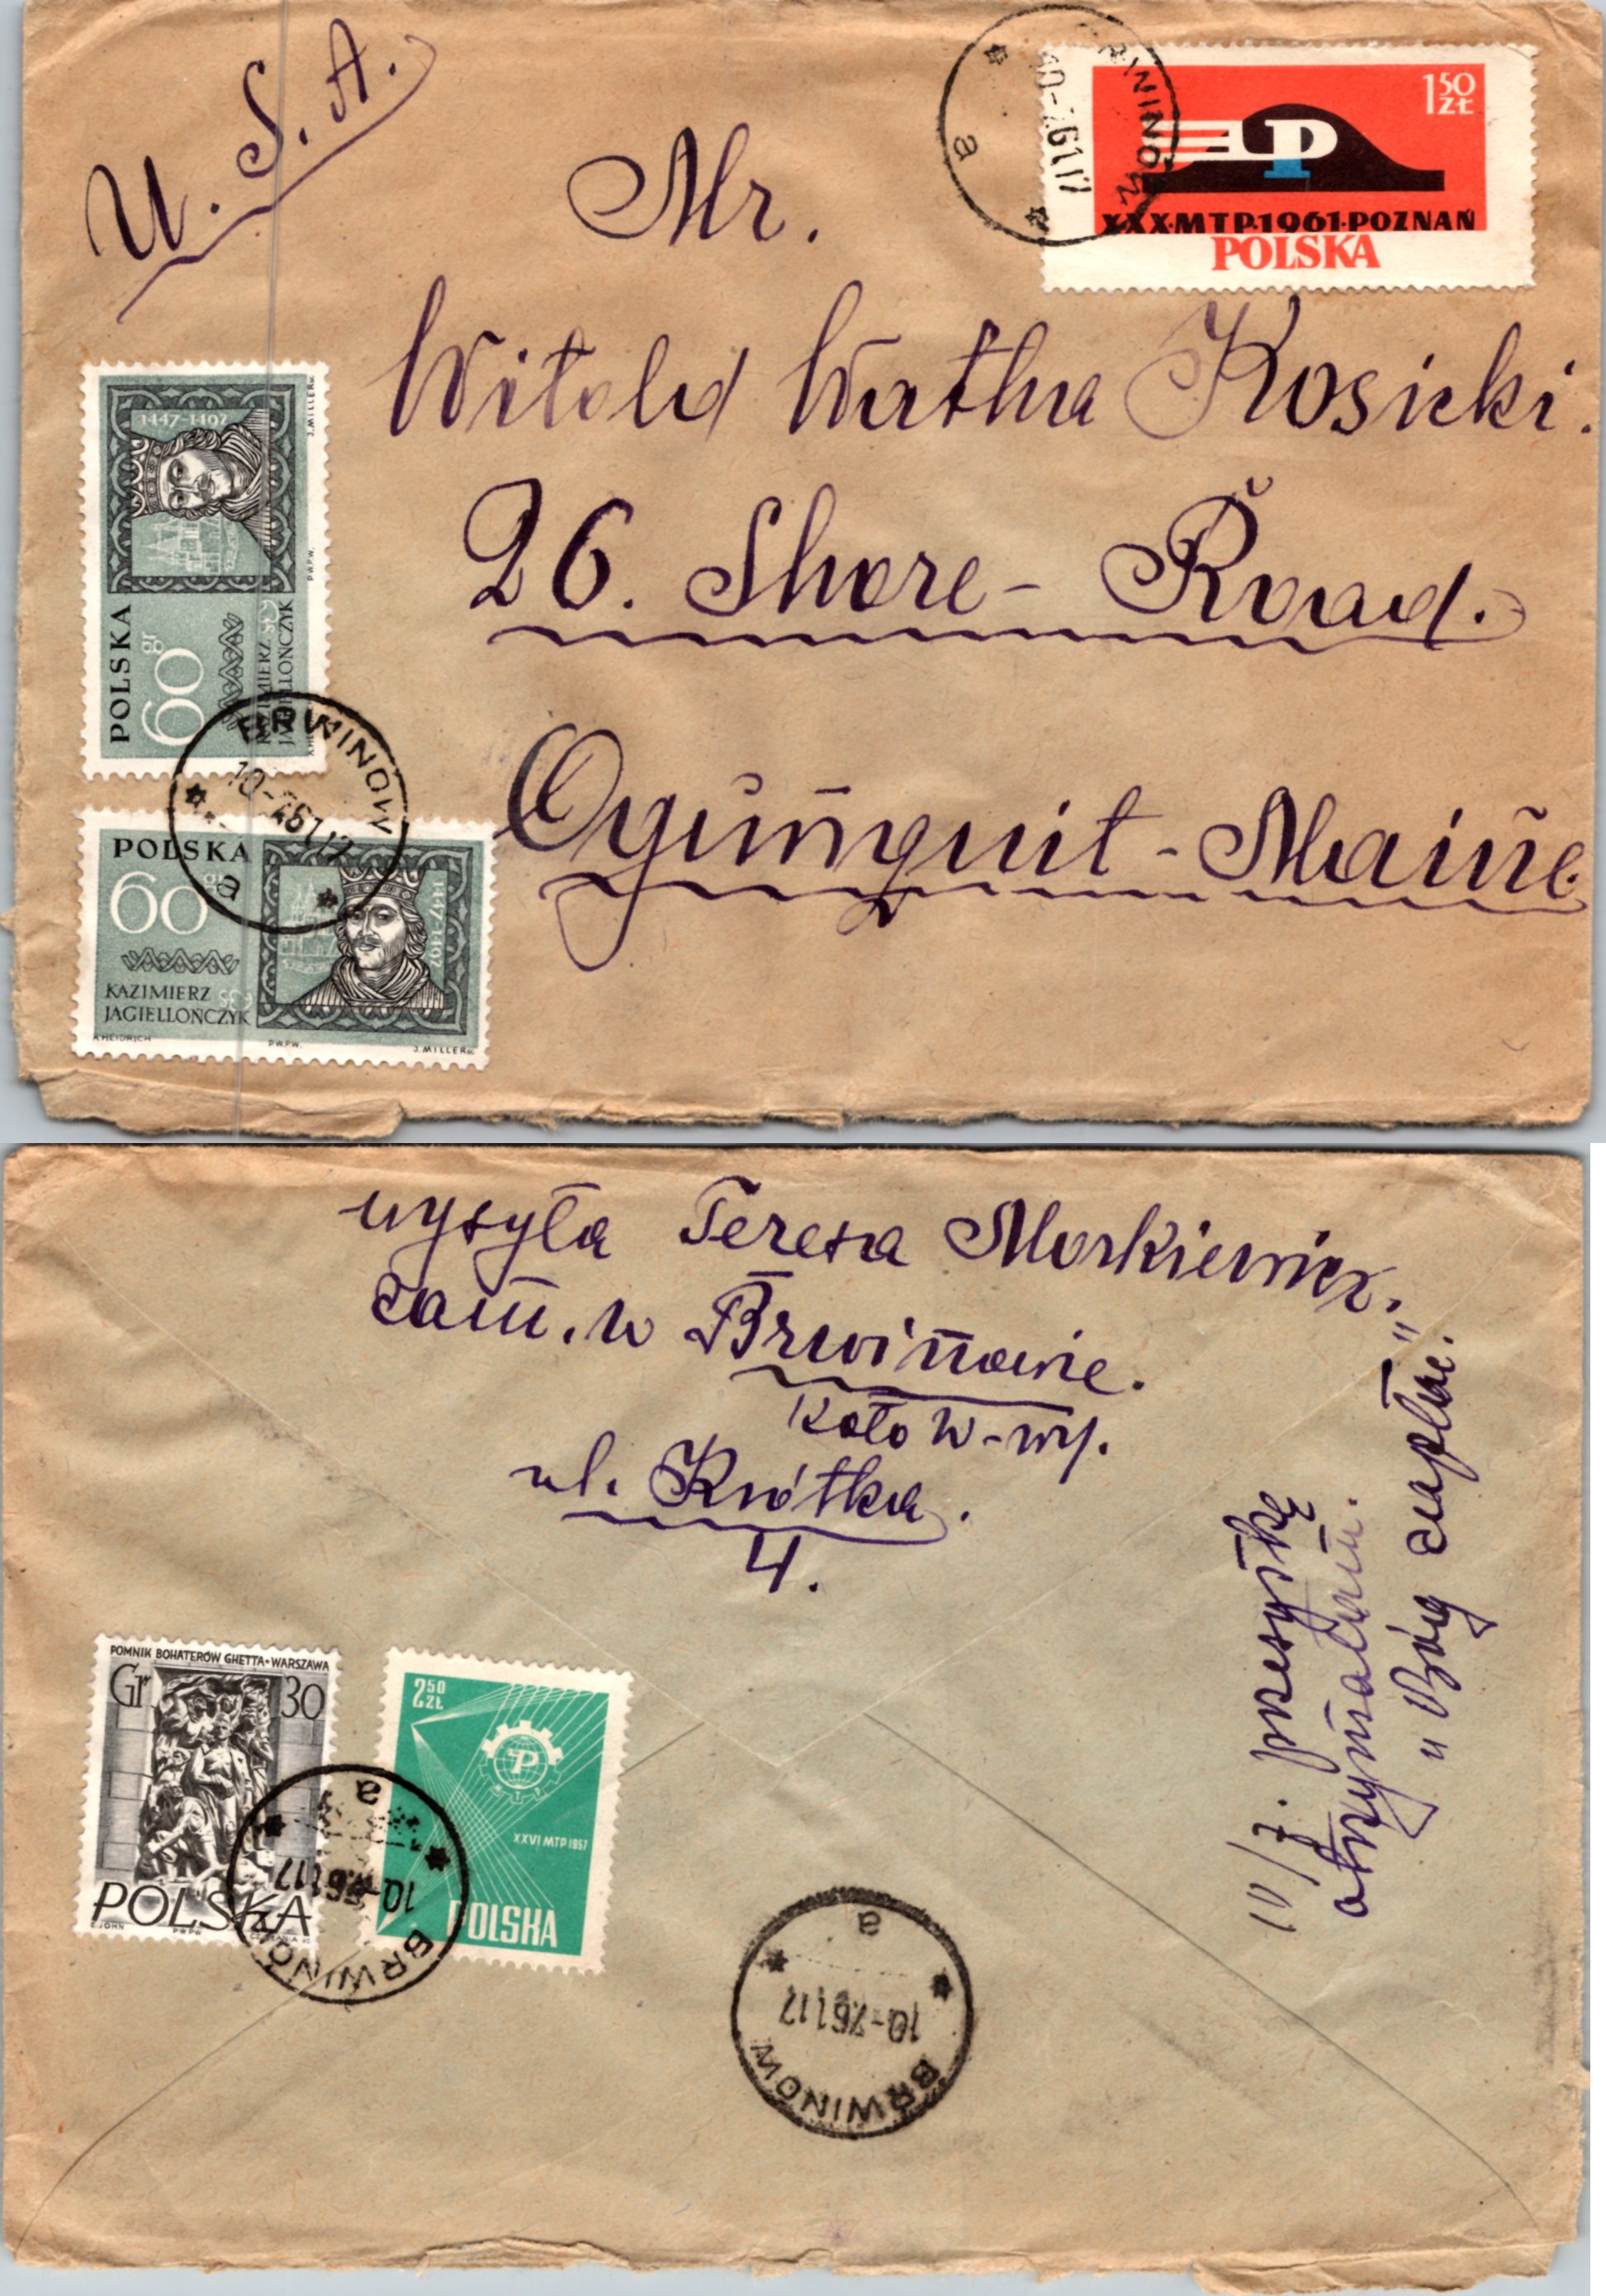 U. S. A.
Mr.
Witold Kosicki.
26. Shore - Road.
Ogunquit - Maine.
1 50 ZŁ
P
XXX·MTP·1961·POZNAŃ
POLSKA
BRWINÓW
10-7.61 17
a
1447-1492
POLSKA
60 gr
KAZIMIERZ
JAGIELLOŃCZYK
J. MILLER sc.
P.W.P.W.
BRWINÓW
10-7.61 17
a
POLSKA
60 gr
1447-1492
KAZIMIERZ
JAGIELLOŃCZYK
X. HEIDRICH P.W.P.W. J. MILLER sc.
wysyła Teresa Morkiewicz.
zam. w Brwinowie.
koło W-wy.
ul. Krótka.
4.
10/7. przesyłkę
otrzymałam.
„Bóg zapłać."
POMNIK BOHATERÓW GHETTA·WARSZAWA
Gr 30
POLSKA
P.W.P.W.
2 50 ZŁ
P
MTP
XXVI MTP 1957
POLSKA
a
10-7.61 17
BRWINÓW
a
10-7.61 17
BRWINÓW